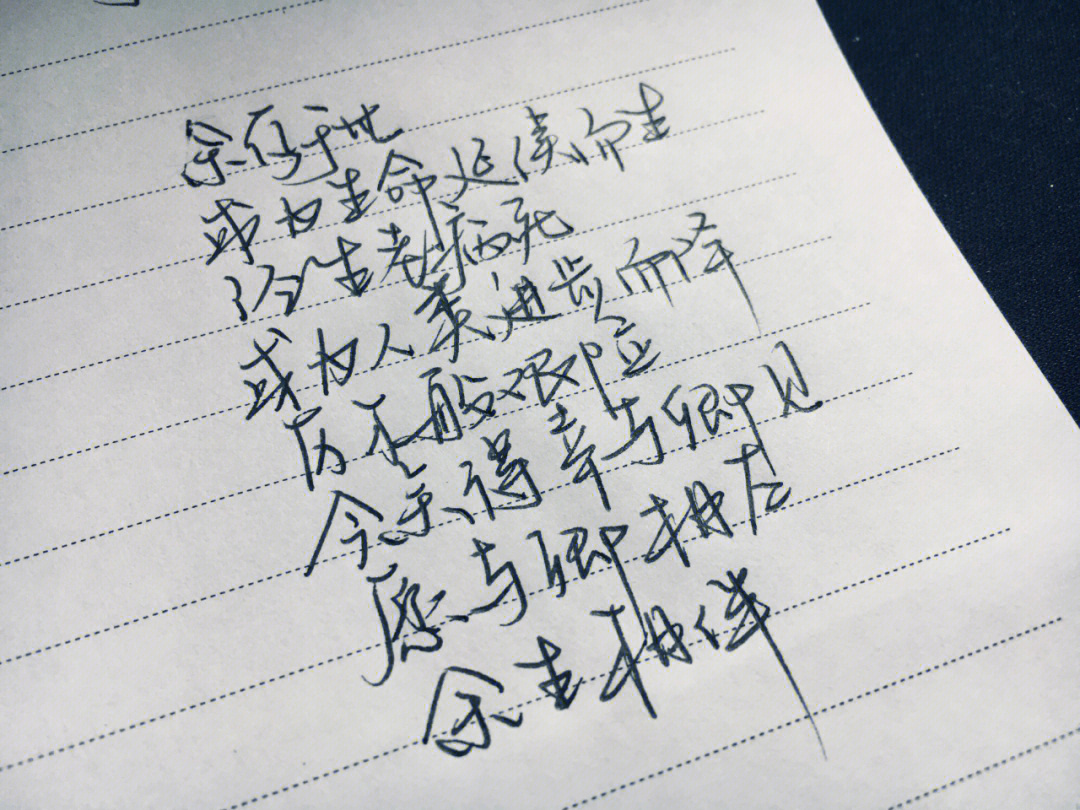 余存于世
或为生命延续而生
经生老病死
或为人类进步而泽
历千般艰险
今余得幸与卿见
愿与卿相左
余生相伴